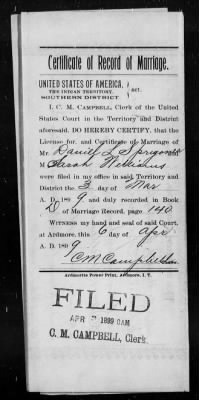 Certificate of Record of Marriage.
UNITED STATES OF AMERICA,
THE INDIAN TERRITORY, sct.
SOUTHERN DISTRICT
I, C. M. CAMPBELL, Clerk of the United
States Court in the Territory and District
aforesaid, DO HEREBY CERTIFY, that the
License for, and Certificate of Marriage of
Mr. Daniel L
M Sarah Williams
were filed in my office in said Territory and
District the 3 day of Mar
A. D. 1899 and duly recorded in Book
D of Marriage Record, page 140
WITNESS my hand and seal of said Court,
at Ardmore, this 6 day of Apr
A. D. 1899
C M Campbell
Ardmorite Power Print, Ardmore, I. T.
FILED
APR 1899 9AM
C. M. CAMPBELL, Clerk